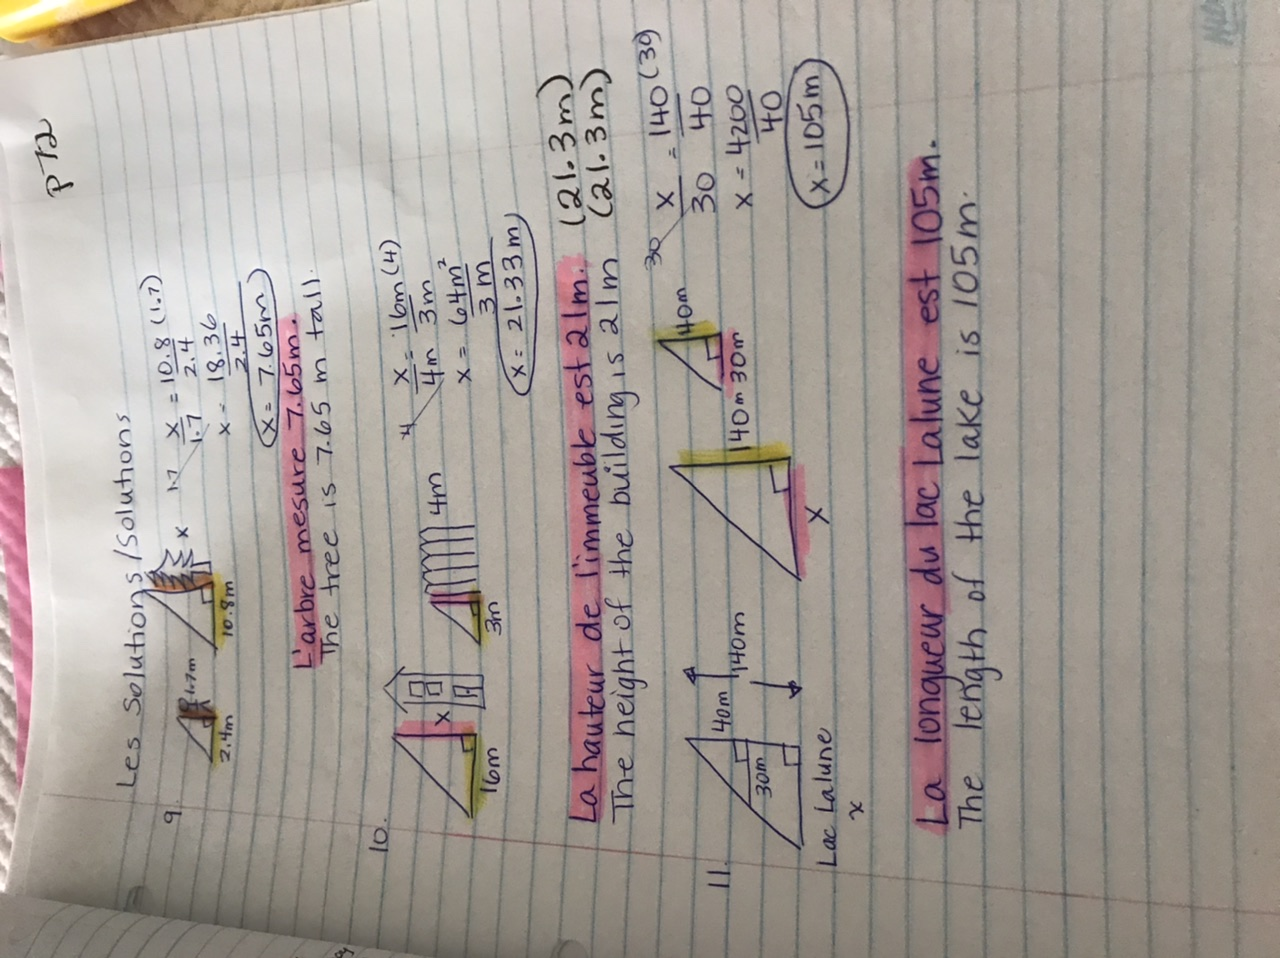 P72
Les Solutions/Solutions
9.
1.7m
2.4m
x
10.8m
1.7 x/1.7 = 10.8(1.7)/2.4
x = 18.36/2.4
x = 7.65m
L'arbre mesure 7.65m.
The tree is 7.65 m tall.
10.
x
16m
4m
3m
4 x/4m = 16m(4)/3m
x = 64m²/3m
x = 21.33m
La hauteur de l'immeuble est 21m. (21.3m)
The height of the building is 21m (21.3m)
11.
40m
140m
30m
Lac Lalune
x
140m
x
40m
30m
30 x/30 = 140(30)/40
x = 4200/40
x = 105m
La longueur du lac Lalune est 105m.
The length of the lake is 105m.